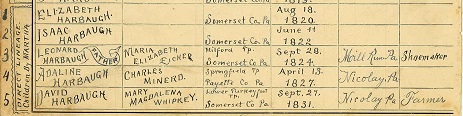 DIRECT LINEAGE
Children by MARTHA
ELIZABETH HARBAUGH. Somerset Co Pa Aug 18. 1820.
2 ISAAC HARBAUGH. Somerset Co Pa June 11 1822.
3 LEONARD HARBAUGH FATHER MARIA ELIZABETH EICKER Milford Tp Somerset Co Pa Sept 28. 1824. Mill Run Pa Shoemaker
4 ADALINE HARBAUGH CHARLES MINERD. Springfield Tp Fayette Co Pa April 13. 1827. Nicolay, Pa.
5 DAVID HARBAUGH MARY MAGDALENA WHIPKEY. Lower Turkeyfoot Tp. Somerset Co Pa Sept. 27. 1831. Nicolay Pa Farmer